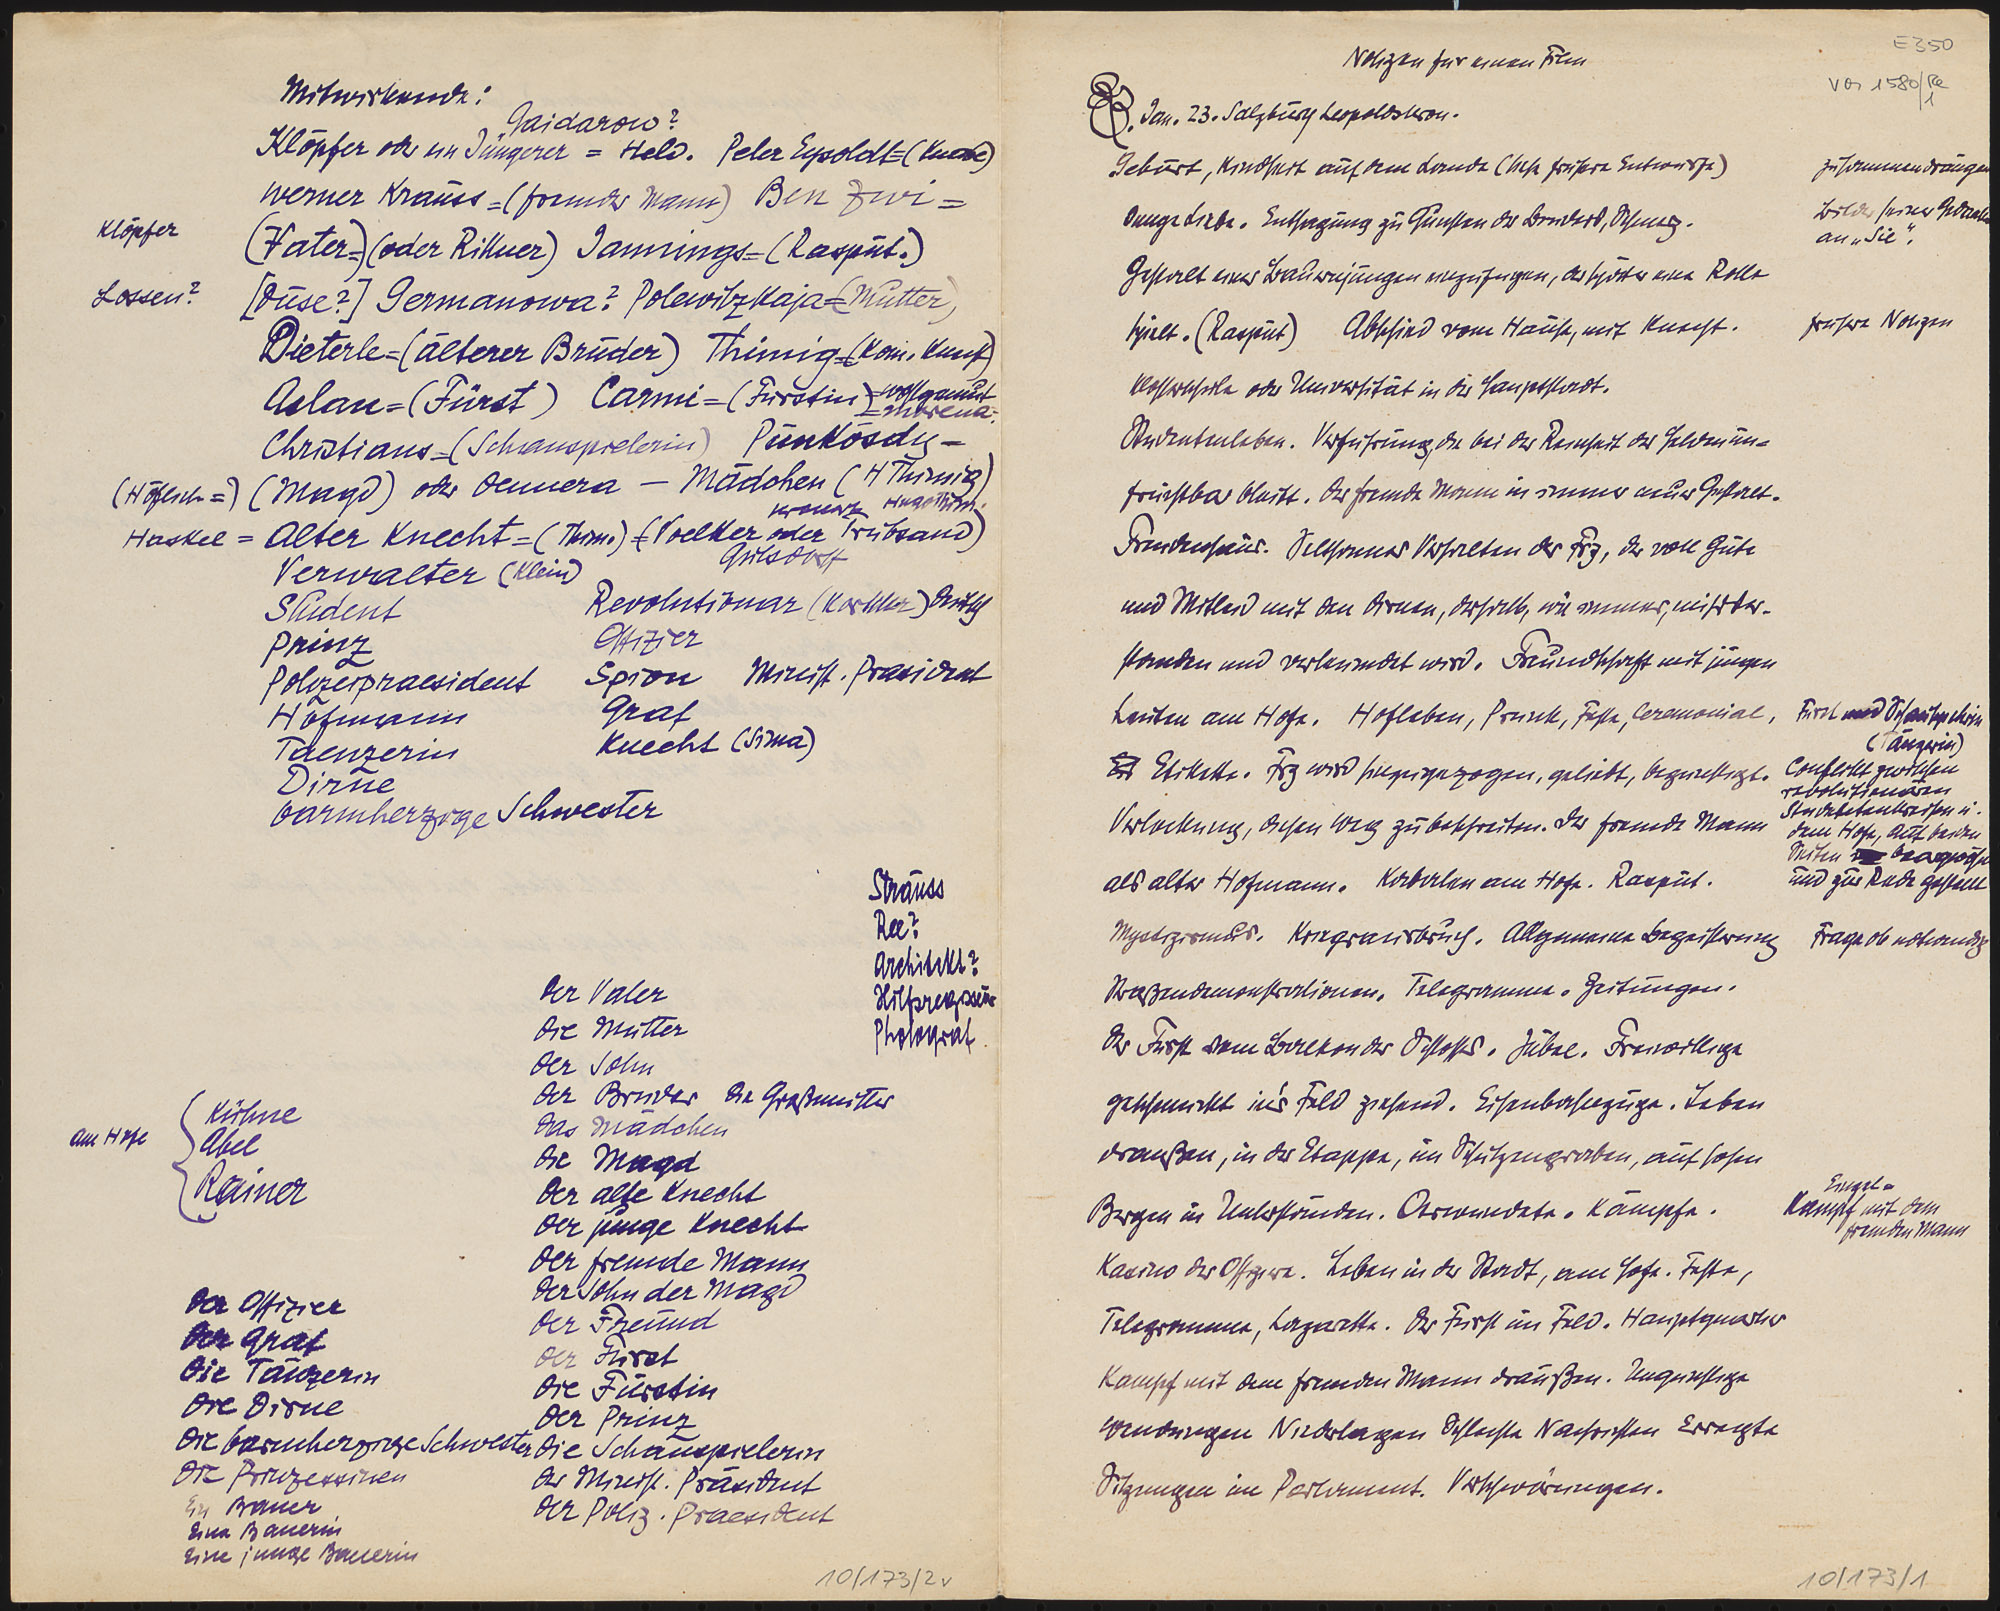 Mitwirkende:
Gaidarow?
Klöpfer oder ein Jüngerer = Held. Peter Eysoldt=(Knabe)
Werner Krauss=(fremder Mann) Ben Zwi =
Klöpfer
(Vater=)(oder Rittner) Jannings=(Rasput.)
Lossen?
[Duse?] Germanowa? Polewitzkaja=(Mutter)
Dieterle=(älterer Bruder) Thimig=(Kom. Knecht)
Aslan=(Fürst) Carmi=(Fürstin)=Wohlgemut
=Morena.
Christians=(Schauspielerin) Pünkösdy=
(Höflich=) (Magd) oder Dennera — Mädchen (H Thimig)
Haskel = Alter Knecht=(Thim.) (Voelker oder Trübsand)
Gülsdorff
Verwalter (Klein)
Student Revolutionär (Kortner) Deutsch
Prinz Offizier
Polizeipraesident Spion Minist. Präsident
Hofmann Graf
Taenzerin Knecht (Sima)
Dirne
barmherzige Schwester
Strauss
Ree?
Architekt?
Hilfsregisseur
Photograf.
Der Vater
Die Mutter
Der Sohn
Der Bruder Die Großmutter
Das Mädchen
Die Magd
Der alte Knecht
Der junge Knecht
Der fremde Mann
Der Sohn der Magd
Der Freund
Der Fürst
Die Fürstin
Der Prinz
Die Schauspielerin
Der Minist. Präsident
Der Poliz. Praesident
am Hofe
Kühne
Abel
Rainer
Der Offizier
Der Graf
Die Tänzerin
Die Dirne
Die barmherzige Schwester
Die Prinzessinen
Ein Bauer
Eine Bäuerin
Eine junge Bäuerin
10/173/2v
E350
Vor 1580/Re
1
Notizen für einen Film
Jan. 23. Salzburg Leopoldskron.
Geburt, Kindheit auf dem Lande (siehe frühere Entwürfe) zusammendrängen
Junge Liebe. Entsagung zu Gunsten des Bruders, Schmerz. Bilder seiner Gedanken
an "Sie".
Gestalt eines Bauernjungen einzufügen, der später eine Rolle
spielt. (Rasput) Abschied vom Hause, mit Knecht. frühere Notizen
Klosterschule oder Universität in der Hauptstadt.
Studentenleben. Verführung, die bei der Reinheit des Helden un=
fruchtbar bleibt. Der fremde Mann in immer neuer Gestalt.
Freudenhaus. Seltsames Verhalten des Frz, der voll Güte
und Mitleid mit den Dirnen, deshalb, wie immer, mißver-
standen und verleumdet wird. Freundschaft mit jungen
Leuten am Hofe. Hofleben, Prunk, Feste, Ceremonial, Fürst und Schauspielerin
(Tänzerin)
Etikette. Frz wird hinzugezogen, geliebt, begünstigt. Conflikt zwischen
revolutionären
Studentenkreisen u.
Verlockung, diesen Weg zu beschreiten. Der fremde Mann dem Hofe, auf beiden
Seiten beargwöhnt
als alter Hofmann. Kabalen am Hofe. Rasput. und zur Rede gestellt
Mystizismus. Kriegsausbruch. Allgemeine Begeisterung Frage ob notwendig
Straßendemonstrationen. Telegramme. Zeitungen.
Der Fürst vom Balkon des Schlosses. Jubel. Freiwillige
geschmückt in's Feld ziehend. Eisenbahnzüge. Leben
draußen, in der Etappe, im Schützengraben, auf hohen
Bergen in Unterständen. Verwundete. Kämpfe. Einzel=
Kampf mit dem
fremden Mann
Kasino der Offiziere. Leben in der Stadt, am Hofe. Feste,
Telegramme, Lazarette. Der Fürst im Feld. Hauptquartier
Kampf mit dem fremden Mann draußen. Ungünstige
Wendungen Niederlagen Schlechte Nachrichten Erregte
Sitzungen im Parlament. Verschwörungen.
10/173/1